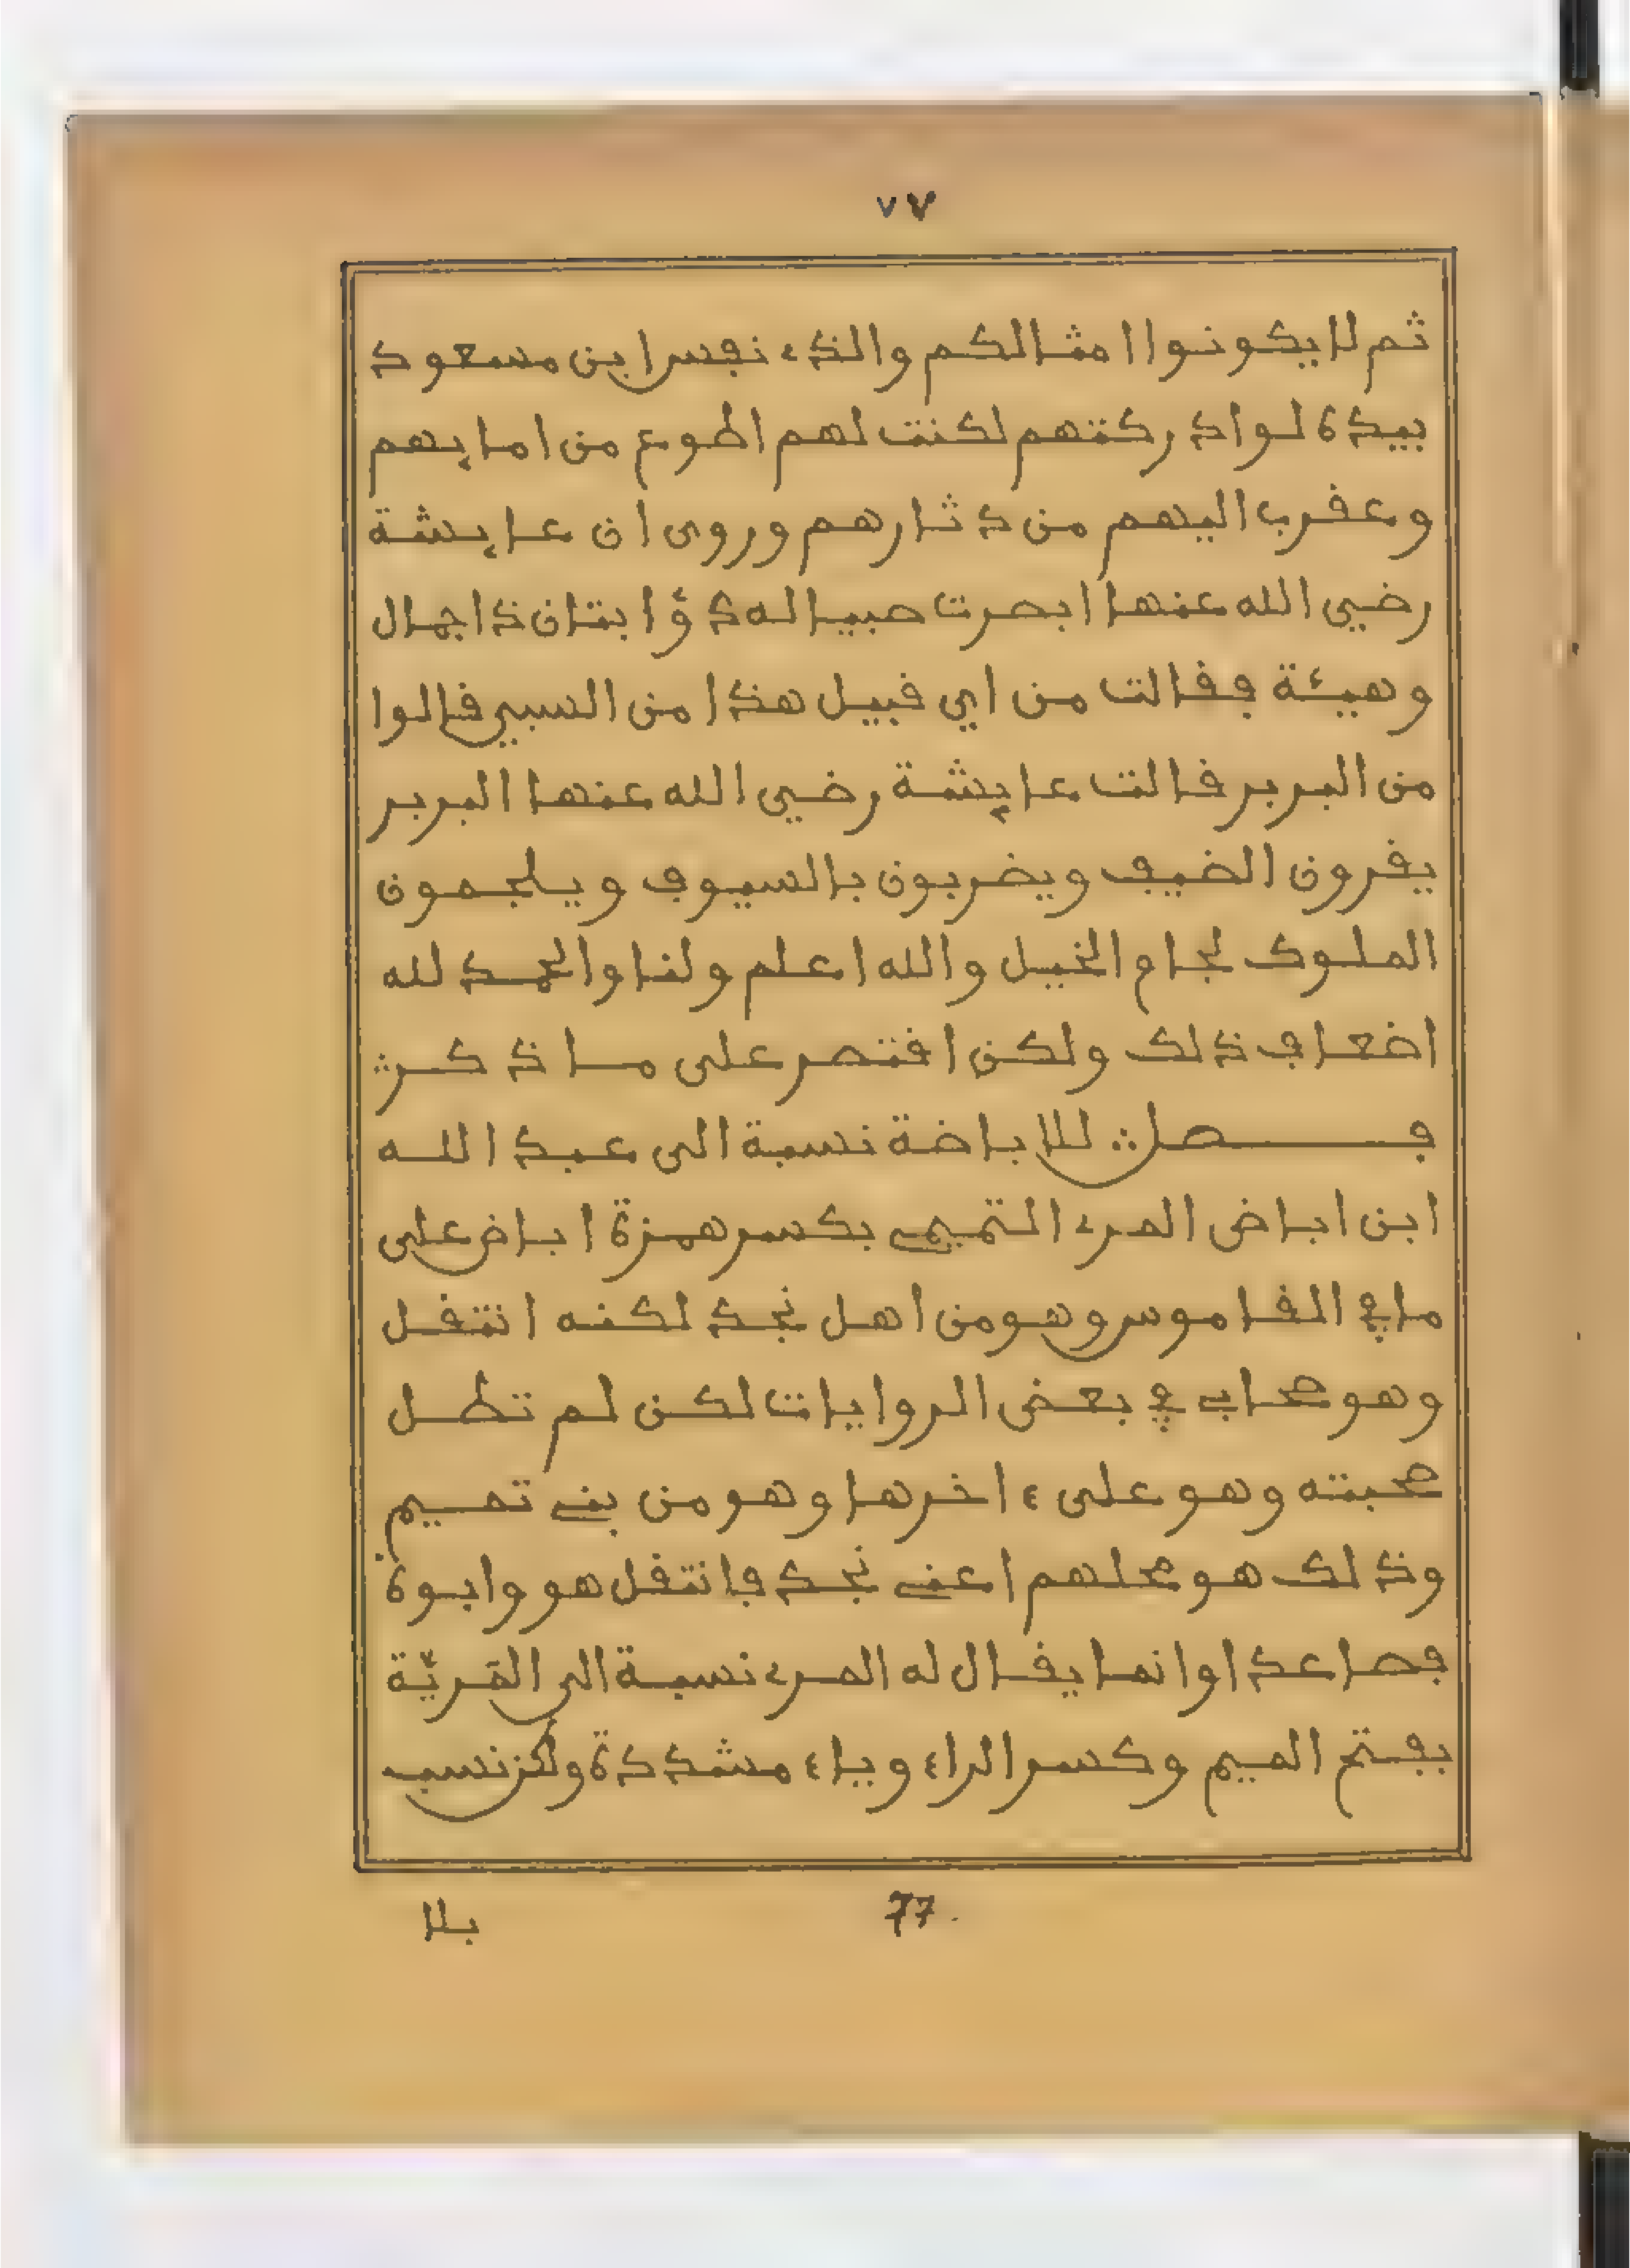 ٧٧
ثم لا يكونوا امثالكم والذي نفس ابن مسعود
بيده لو ادركتهم لكنت لهم اطوع من امايهم
واقرب اليهم من دثارهم وروى ان عايشة
رضي الله عنها ابصرت صبيا له ذؤابتان ذا جمال
وهيئة فقالت من اي قبيل هذا من السبي قالوا
من البربر قالت عايشة رضي الله عنها البربر
يقرون الضيف ويضربون بالسيوف ويلجمون
الملوك لجام الخيل والله اعلم ولنا والحمد لله
اضعاف ذلك ولكن اقتصر على ما ذكر
فصل الاباضة نسبة الى عبد الله
ابن اباض المري التميمي بكسر همزة اباض على
ما في القاموس وهو من اهل نجد لكنه انتقل
وهو صحابي في بعض الروايات لكن لم تطل
صحبته وهو على ءاخرها وهو من بني تميم
وذلك هو محلهم اعني نجد فانتقل هو وابوه
فصاعدا وانما يقال له المري نسبة الى المَريّة
بفتح الميم وكسر الراء وياء مشددة ولكن نسب
77
بلا